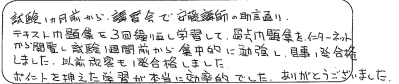 試験1カ月前から、講習会で守護講師の助言通り、
テキストや問題集を3回繰り返し学習して、弱点問題集をインターネット
から閲覧し試験1週間前から集中的に勉強し、見事1発合格
しました。以前改客も1発合格しました。
ポイントを押えた学習が本当に効率的でした。ありがとうございました。